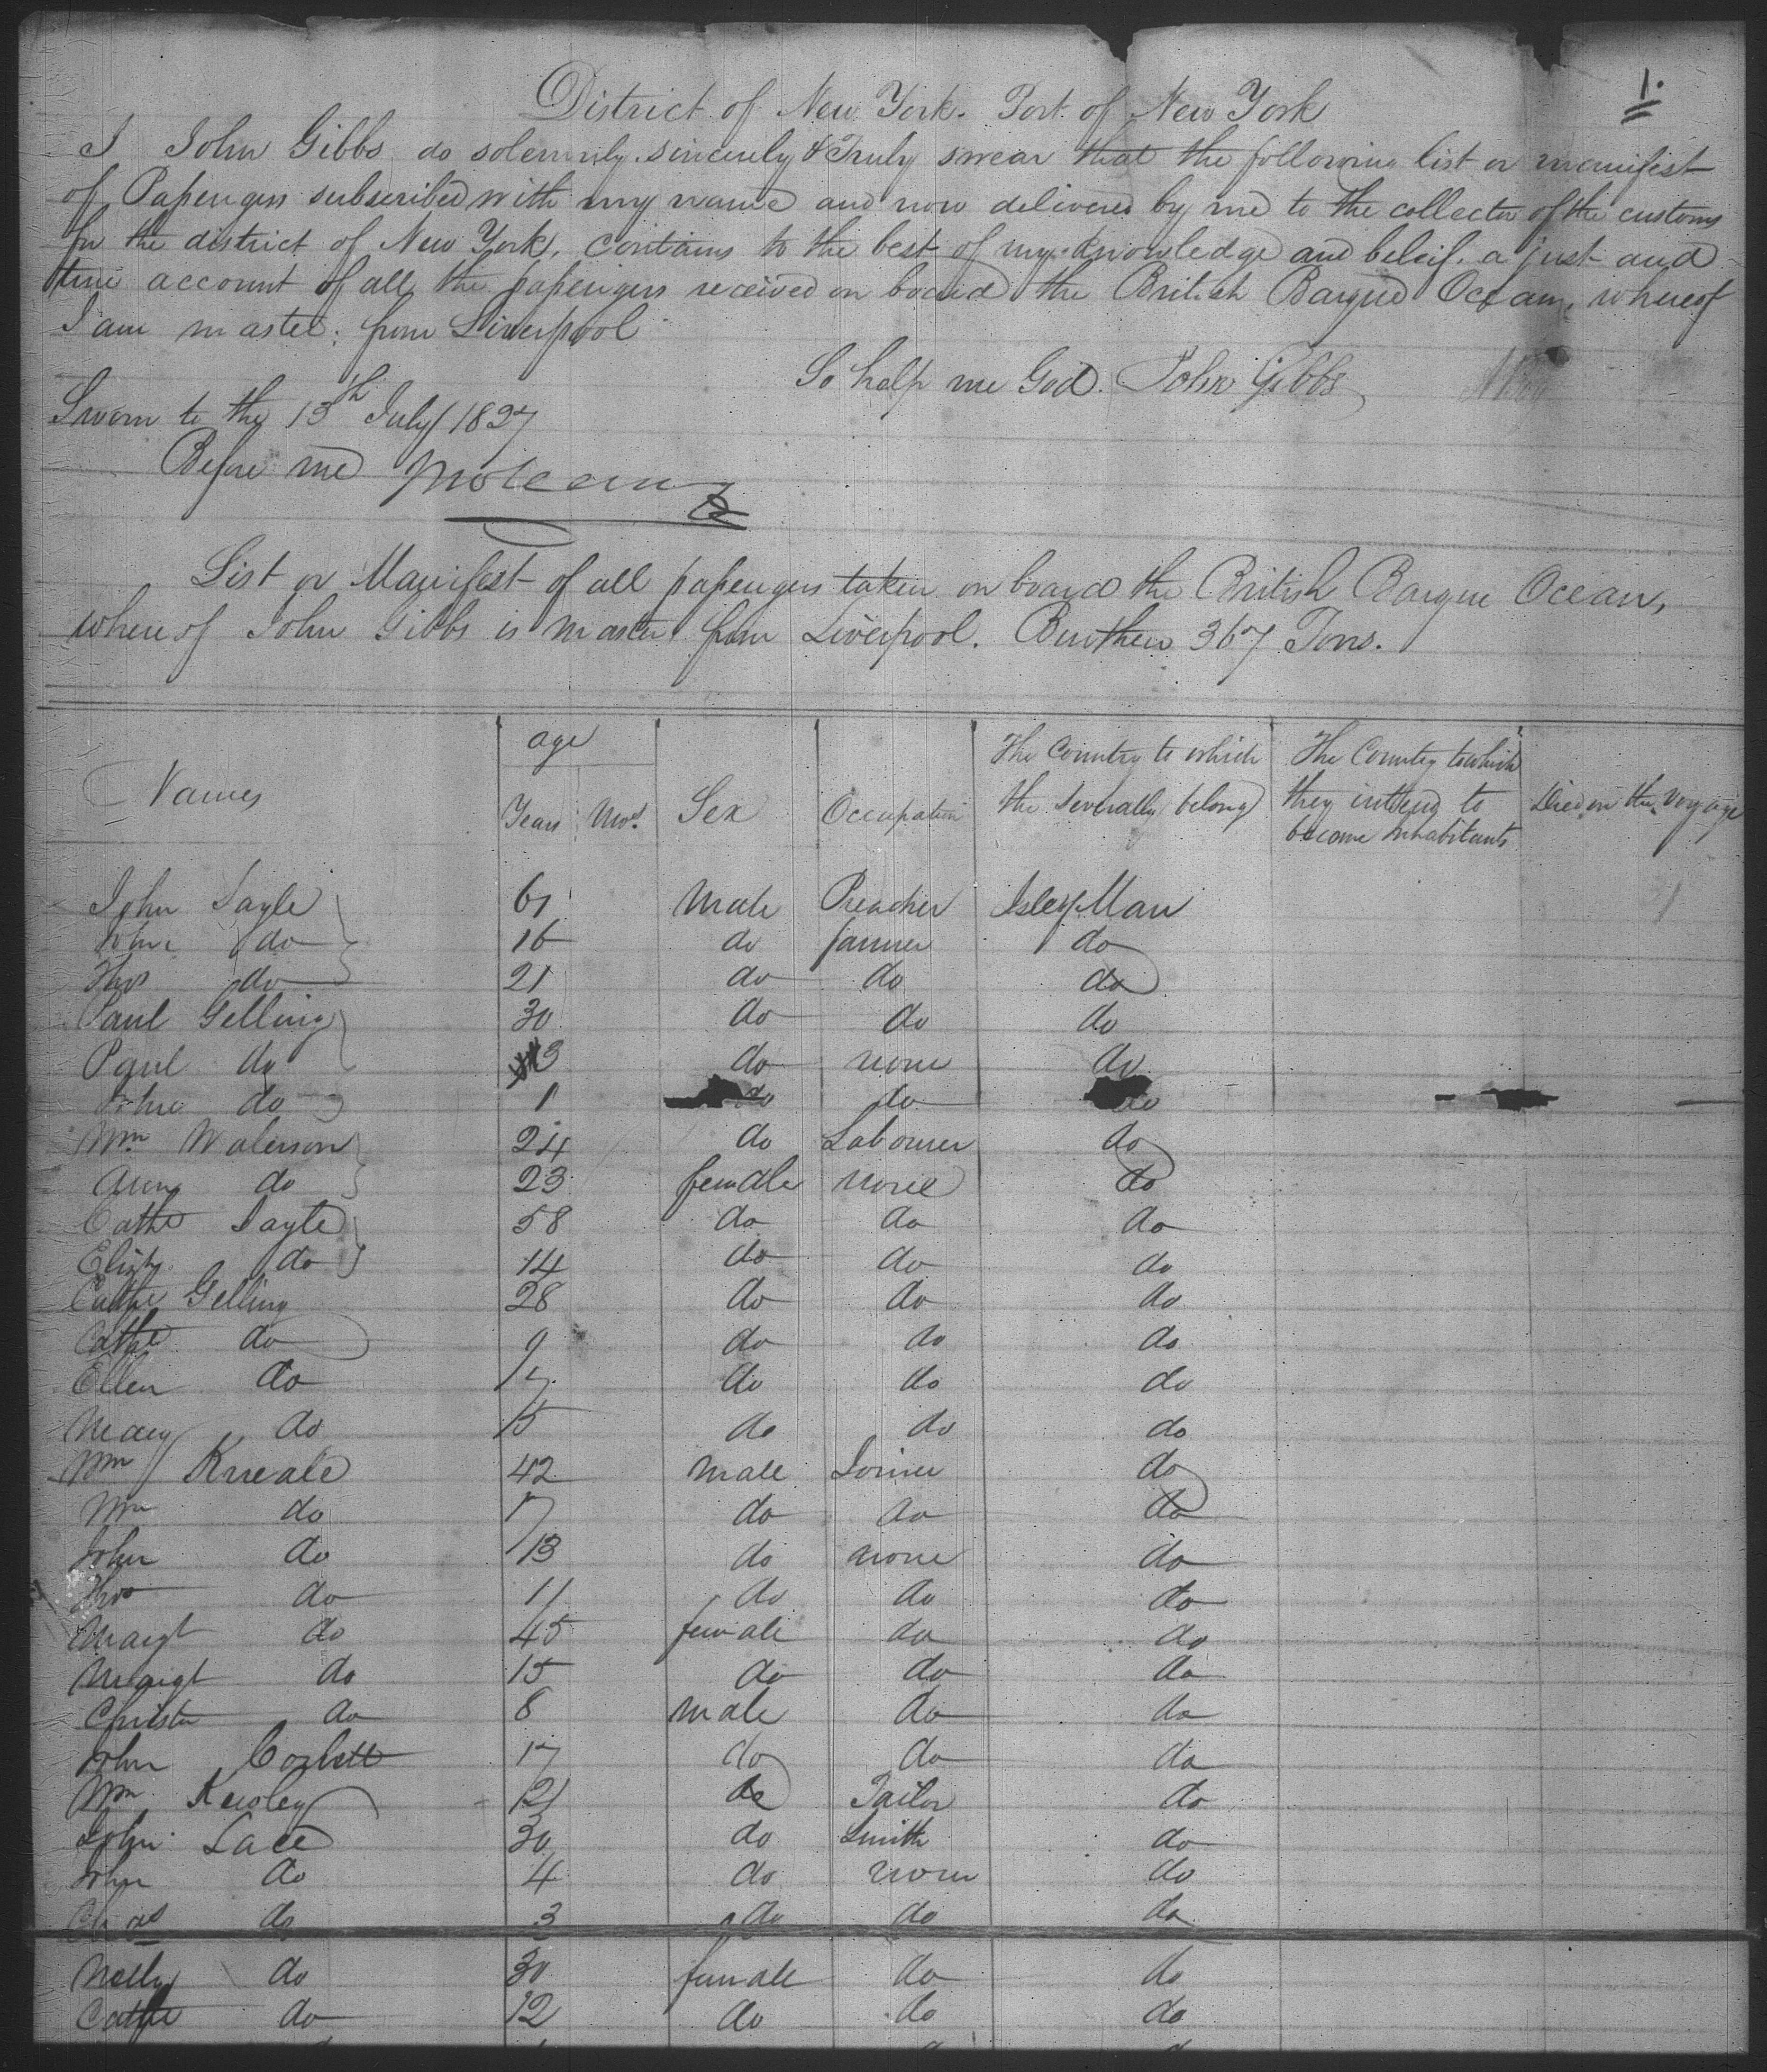 1.
District of New York. Port of New York
I John Gibbs do solemnly, sincerely & Truly swear that the following list or manifest
of Passengers subscribed with my name and now delivered by me to the collector of the customs
for the district of New York, contains to the best of my knowledge and beleif. a just and
true account of all the passengers received on board the British Barque Ocean, whereof
I am master; from Liverpool
So help me God. John Gibbs
Sworn to the 13th July 1827
Before me
List or Manifest of all passengers taken on board the British Barque Ocean,
where of John Gibbs is master from Liverpool. Burthen 367 Tons.
Names age Years Mos. Sex Occupation The Country to which the severally belong The Country to which they intend to become inhabitants Died on the voyage
John Sayle 61 Male Preacher Isle of Man
John do 16 do farmer do
Thos do 21 do do do
Paul Gelling 30 do do do
Paul do 3 do none do
John do 1 do do do
Wm Waterson 24 do Labourer do
Ann do 23 female none do
Cathe Sayle 58 do do do
Elizth do 14 do do do
Cathe Gelling 28 do do do
Cathe do 9 do do do
Ellen do 7 do do do
Mary do 5 do do do
Wm Kneale 42 male Joiner do
Wm do 17 do do do
John do 13 do none do
Thos do 11 do do do
Margt do 45 female do do
Margt do 15 do do do
Christr do 8 male do do
John Corlett 17 do do do
Wm Kewley 21 do Tailor do
John Lace 30 do Smith do
John do 4 do none do
Chas do 3 do do do
Nelly do 30 female do do
Cathe do 12 do do do